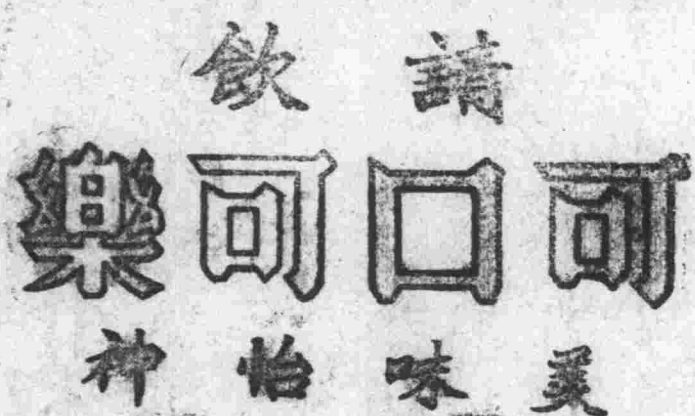 請飲
可口可樂
美味怡神